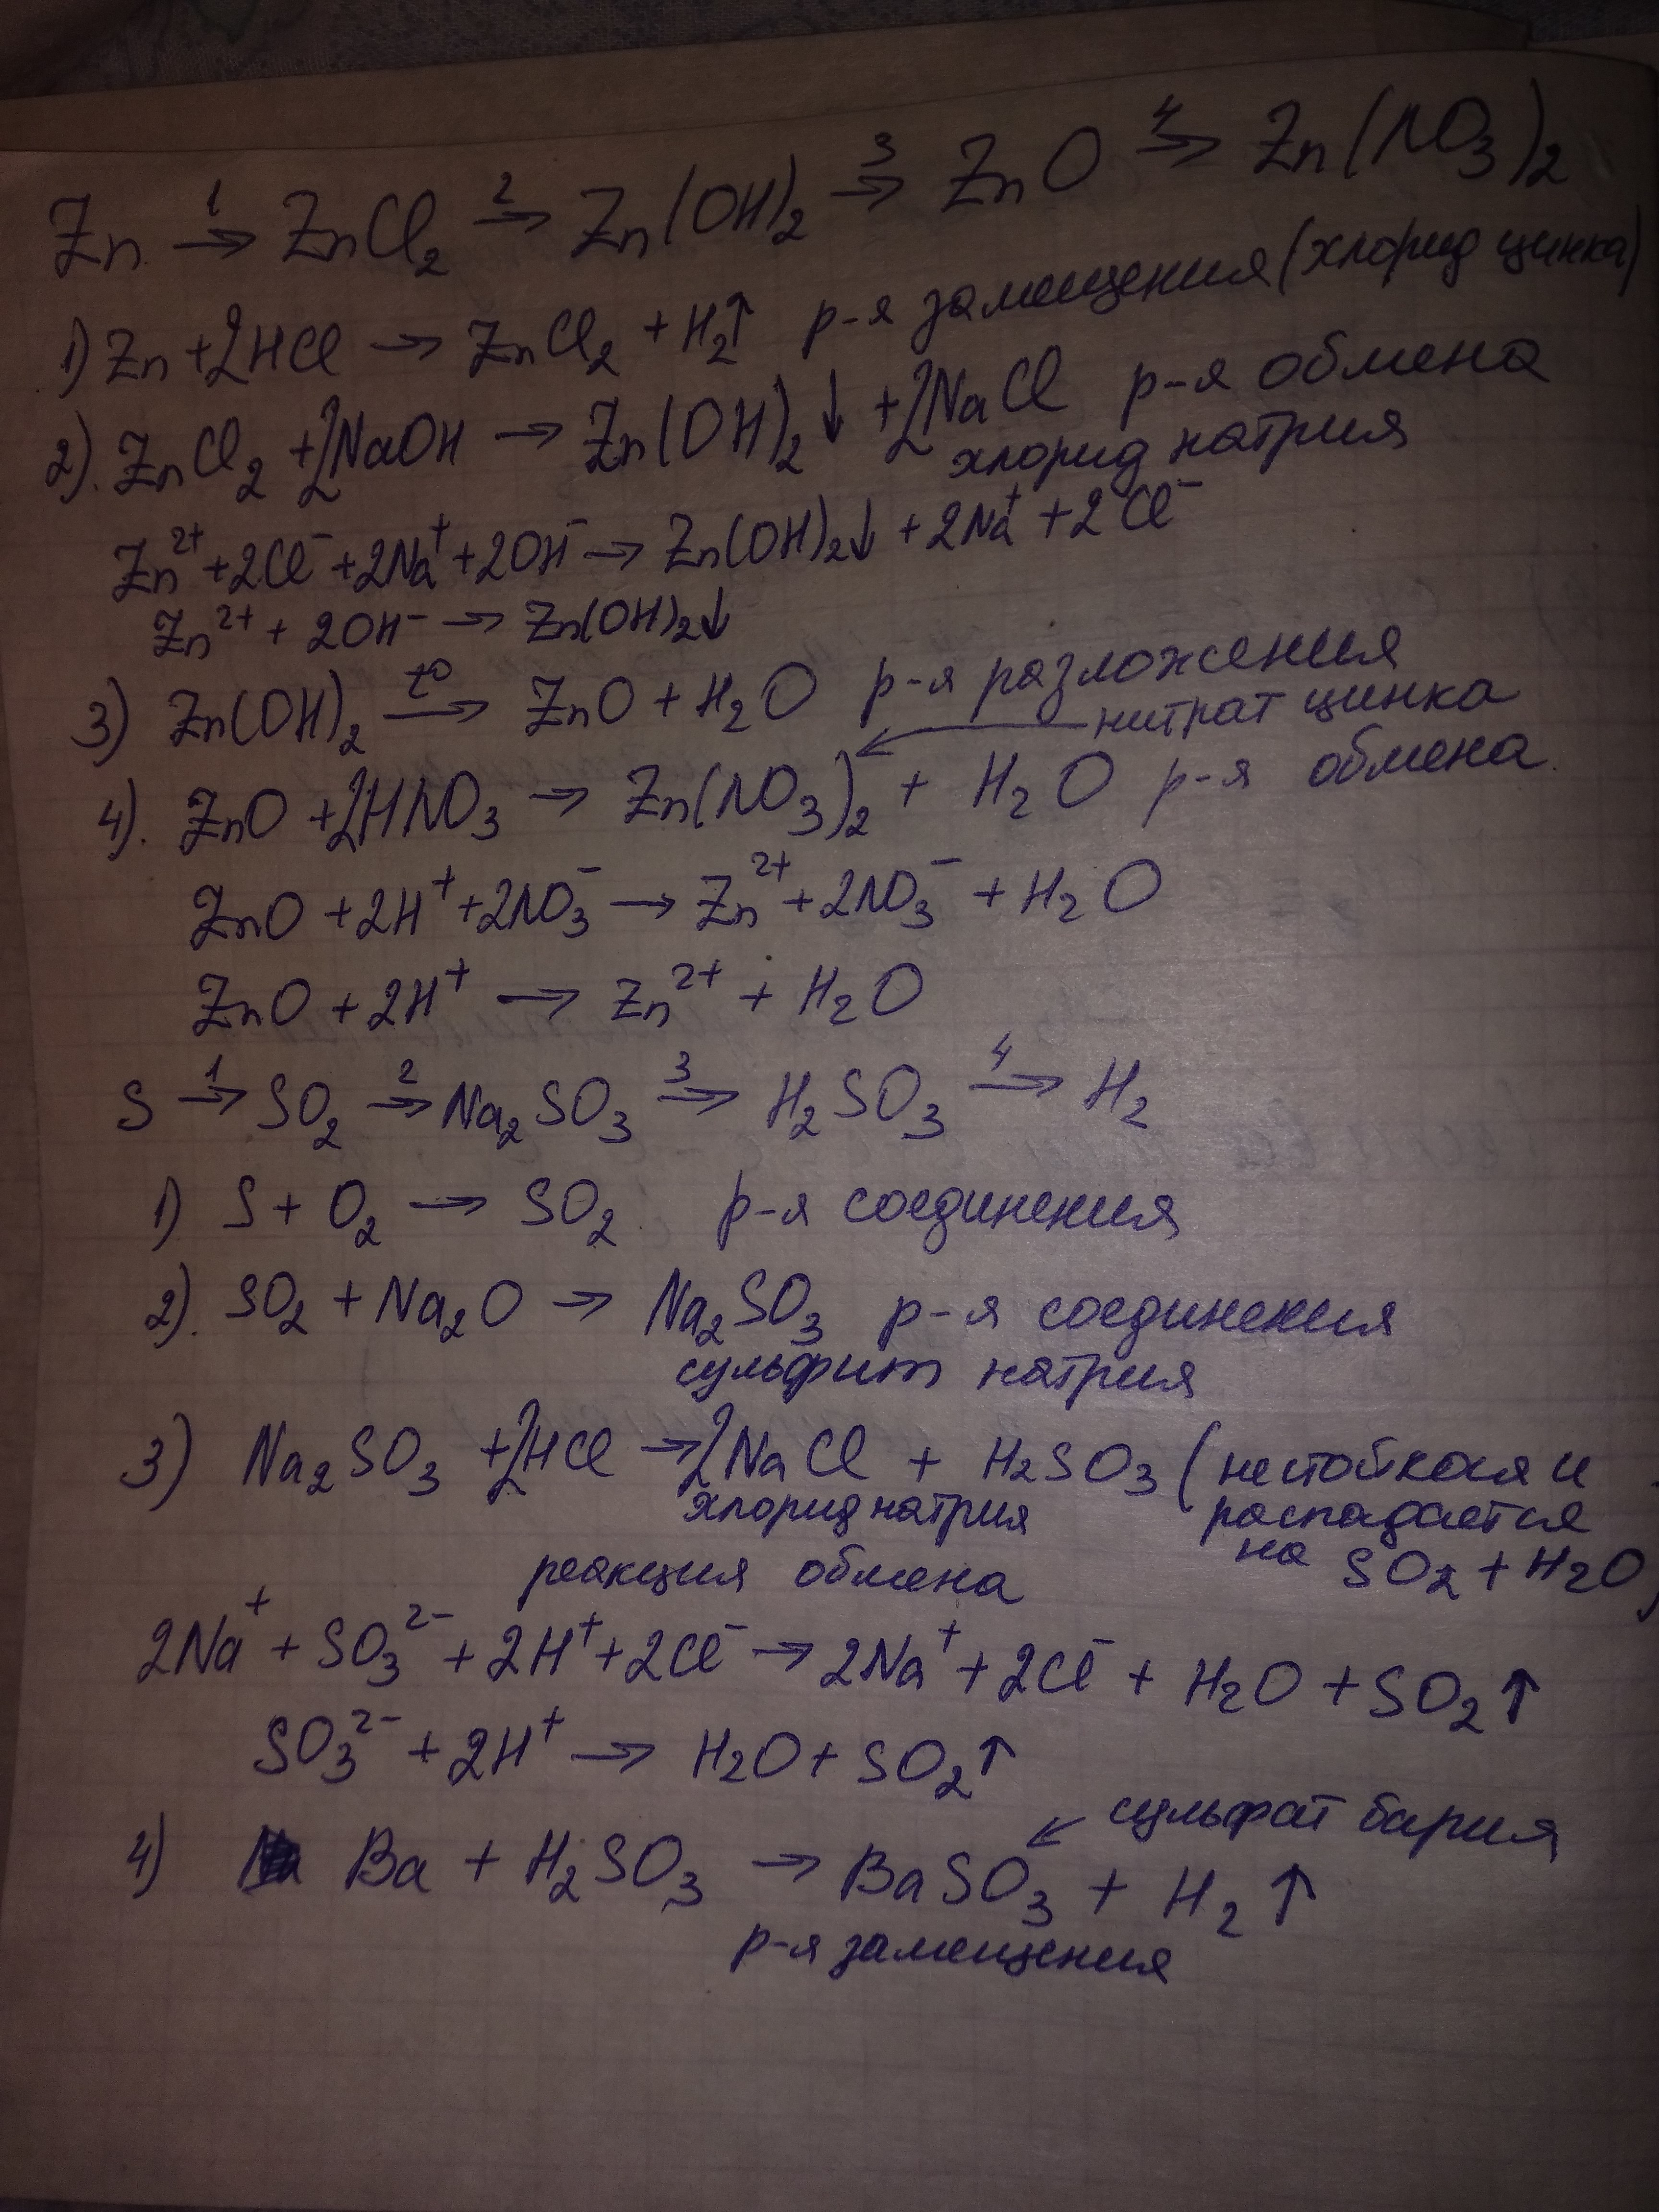 Zn →¹ ZnCl₂ →² Zn(OH)₂ →³ ZnO →⁴ Zn(NO₃)₂
1) Zn + 2HCl → ZnCl₂ + H₂↑ р-я замещения (хлорид цинка)
2). ZnCl₂ + 2NaOH → Zn(OH)₂↓ + 2NaCl р-я обмена
хлорид натрия
Zn²⁺ + 2Cl⁻ + 2Na⁺ + 2OH⁻ → Zn(OH)₂↓ + 2Na⁺ + 2Cl⁻
Zn²⁺ + 2OH⁻ → Zn(OH)₂↓
3) Zn(OH)₂ →t° ZnO + H₂O р-я разложения
нитрат цинка
4). ZnO + 2HNO₃ → Zn(NO₃)₂ + H₂O р-я обмена
ZnO + 2H⁺ + 2NO₃⁻ → Zn²⁺ + 2NO₃⁻ + H₂O
ZnO + 2H⁺ → Zn²⁺ + H₂O
S →¹ SO₂ →² Na₂SO₃ →³ H₂SO₃ →⁴ H₂
1) S + O₂ → SO₂ р-я соединения
2). SO₂ + Na₂O → Na₂SO₃ р-я соединения
сульфит натрия
3) Na₂SO₃ + 2HCl → 2NaCl + H₂SO₃ (нестойкая и
хлорид натрия распадается
на SO₂ + H₂O)
реакция обмена
2Na⁺ + SO₃²⁻ + 2H⁺ + 2Cl⁻ → 2Na⁺ + 2Cl⁻ + H₂O + SO₂↑
SO₃²⁻ + 2H⁺ → H₂O + SO₂↑
сульфат бария
4) Ba + H₂SO₃ → BaSO₃ + H₂↑
р-я замещения